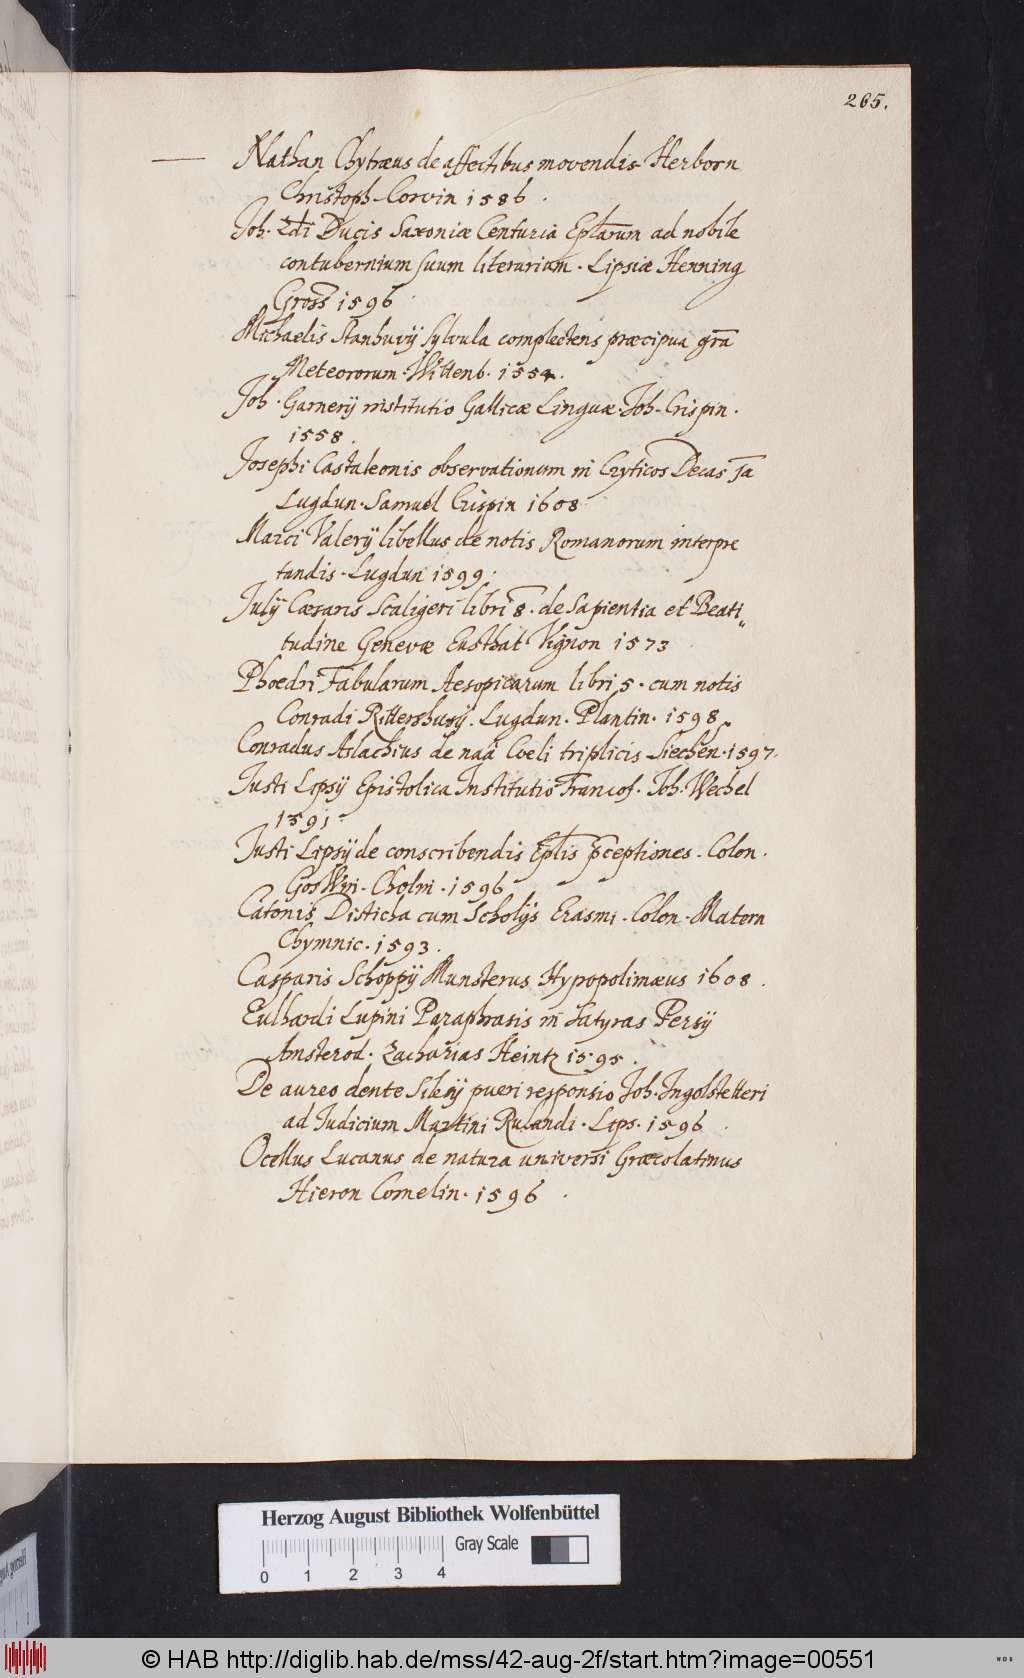 265.
Nathan Chytræus de affectibus movendis Herborn
Christoph. Corvin 1586.
Joh. 2di Ducis Saxoniæ Centuria Eplarum ad nobile
contubernium suum literarium. Lipsiæ Henning
Gross 1596
Michaelis Stanhuvij Sylvula complectens præcipua gra
Meteororum. Wittenb. 1554.
Joh. Garnerij institutio Gallicæ Linguæ. Joh. Crispin.
1558.
Josephi Castaleonis observationum in Cryticos Decas 1a
Lugdun. Samuel Crispin 1608
Marci Valerij libellus de notis Romanorum interpre
tandis. Lugdun 1599.
Julij Cæsaris Scaligeri libri 8. de Sapientia et Beati„
tudine Genevæ Eusthat Vignon 1573
Phoedri Fabularum Aesopicarum libri 5. cum notis
Conradi Rittershusij. Lugdun. Plantin. 1598
Conradus Aslachius de naa Coeli triplicis Siechen. 1597.
Justi Lipsij Epistolica Institutio Francof. Joh. Wechel
1591.
Justi Lipsij de conscribendis Eplis pceptiones. Colon.
Goswin. Cholni. 1596
Catonis Disticha cum Scholijs Erasmi. Colon. Matern
Chymnic. 1593.
Casparis Schoppij Munsterus Hypopolimæus 1608.
Eulhardi Lupini Paraphrasis in Satyras Persij
Amsterod. Zacharias Heintz 1595.
De aureo dente Silesij pueri responsio Joh. Ingolstetteri
ad Judicium Martini Rulandi. Lips. 1596.
Ocellus Lucanus de natura universi Græcolatinus
Hieron Comelin. 1596.
Herzog August Bibliothek Wolfenbüttel
Gray Scale
0 1 2 3 4
© HAB http://diglib.hab.de/mss/42-aug-2f/start.htm?image=00551